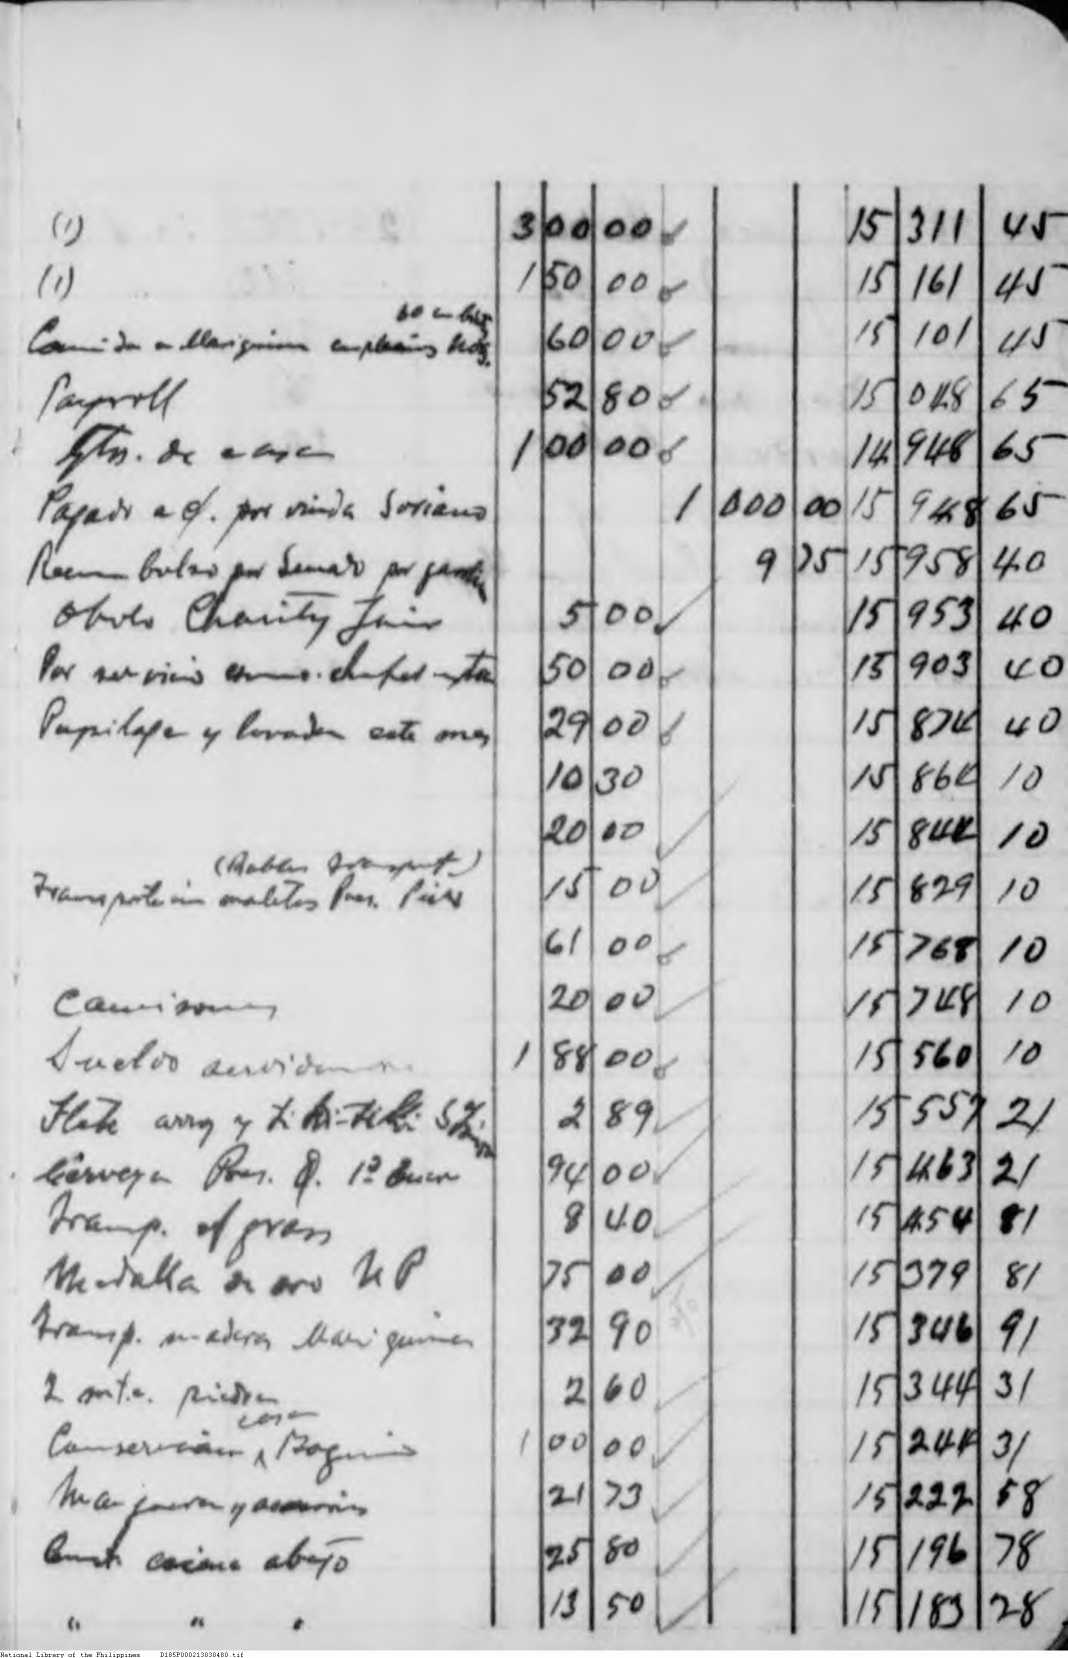 (1) 300 00 15 311 45
(1) 150 00 15 161 45
Comida en Mariquina empleados 60 00 15 101 45
Payroll 52 80 15 048 65
Gtos. de casa 100 00 14 948 65
Pagado a c/. por viuda Soriano 1 000 00 15 948 65
Reembolso por Senado por 9 75 15 958 40
Obolo Charity Fair 5 00 15 953 40
Por servicio chofer 50 00 15 903 40
Pupilaje y lavado este mes 29 00 15 874 40
10 30 15 864 10
20 00 15 844 10
(Robles Transport.)
Transportacion maletas Pres. 15 00 15 829 10
61 00 15 768 10
20 00 15 748 10
Sueldo 188 00 15 560 10
Flete y tiki-tiki 2 89 15 557 21
Cerveza Pres. Q. 1º Enero 94 00 15 463 21
Transp. of grass 8 40 15 454 81
Medalla de oro U P 75 00 15 379 81
Transp. madera Mariquina 32 90 15 346 91
2 mt.c. piedra 2 60 15 344 31
casa
Conservacion Baguio 100 00 15 244 31
Manguera y accesorios 21 73 15 222 58
Const. cocina abajo 25 80 15 196 78
" " " 13 50 15 183 28
National Library of the Philippines D185P000213030480.tif